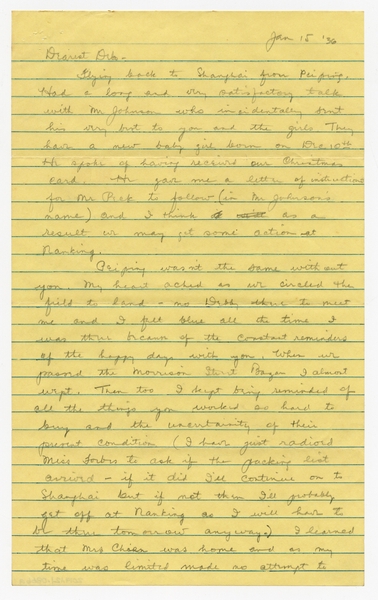 Jan 15 '36
Dearest Deb -
Flying back to Shanghai from Peiping.
Had a long and very satisfactory talk
with Mr Johnson who incidentally sent
his very best to you and the girls. They
have a new baby girl born on Dec 10th
He spoke of having received our Christmas
card. He gave me a letter of instructions
for Mr Peck to follow (in Mr Johnson's
name) and I think as a
result we may get some action at
Nanking.
Peiping wasn't the same without
you. My heart ached as we circled the
field to land - no Deb there to meet
me and I felt blue all the time I
was there because of the constant reminders
of the happy days with you. When we
passed the Morrison Street Bazar I almost
wept. Then too I kept being reminded of
all the things you worked so hard to
buy and the uncertainity of their
present condition (I have just radioed
Miss Forbes to ask if the packing list
arrived - if it did I'll continue on to
Shanghai but if not then I'll probably
get off at Nanking as I will have to
be there tomorrow anyway.) I learned
that Mrs was home and as my
time was limited made no attempt to